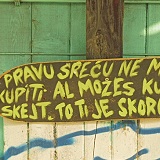 PRAVU SREĆU NE M
KUPITI. AL MOŽEŠ KU
SKEJT, TO TI JE SKOR